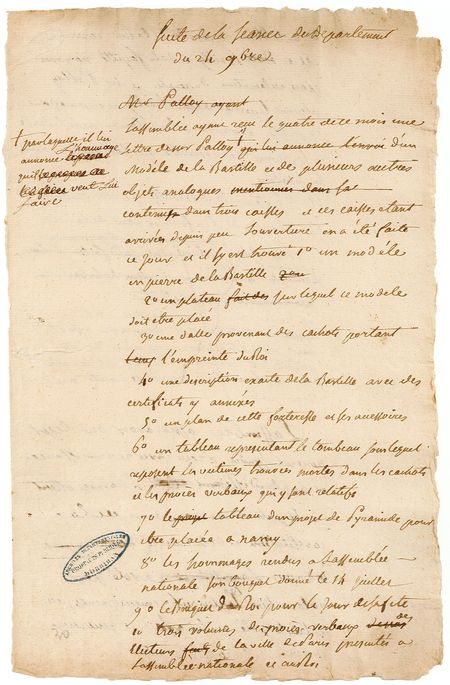 Suite de la Seance du Departement
du 24 9bre
Mr Palloy ayant
Lassemblée ayant reçu le quatre de ce mois une
lettre de mr Palloy + qui lui annonce lenvoi d'un
Modèle de la Bastille et de plusieurs autres
objets analogues mentionnés dans la
contenus dans trois caisses et ces caisses étant
arrivées depuis peu l'ouverture en a été faite
ce jour et il s'y est trouvé 1o un modéle
en pierre de la Bastille
2o un plateau fait des sur lequel ce modele
doit etre placé
3o une dalle provenant des cachots portant
l'empreinte du Roi
4o une description exacte de la Bastille avec des
certificats y annexés
5o un plan de cette forteresse et ses accessoires
6o un tableau representant le tombeau sur lequel
reposent les victimes trouvées mortes dans les cachots
et les procès verbaux qui y sont relatifs
7o le projet tableau d'un projet de Pyramide pour
etre placée a nancy
8o les hommages rendus a Lassemblée
nationale son bouquet donné le 14 juillet
9o le Bouquet du Roi pour le jour de sa fete
et trois volumes de procès verbaux des
Electeurs de la ville de Paris presentés a
Lassemblée nationale et au Roi
+ par laquelle il lui
annonce l'hommage
qu'il
veut lui
faire
ARCHIVES DEPARTEMENTALES
MORBIHAN